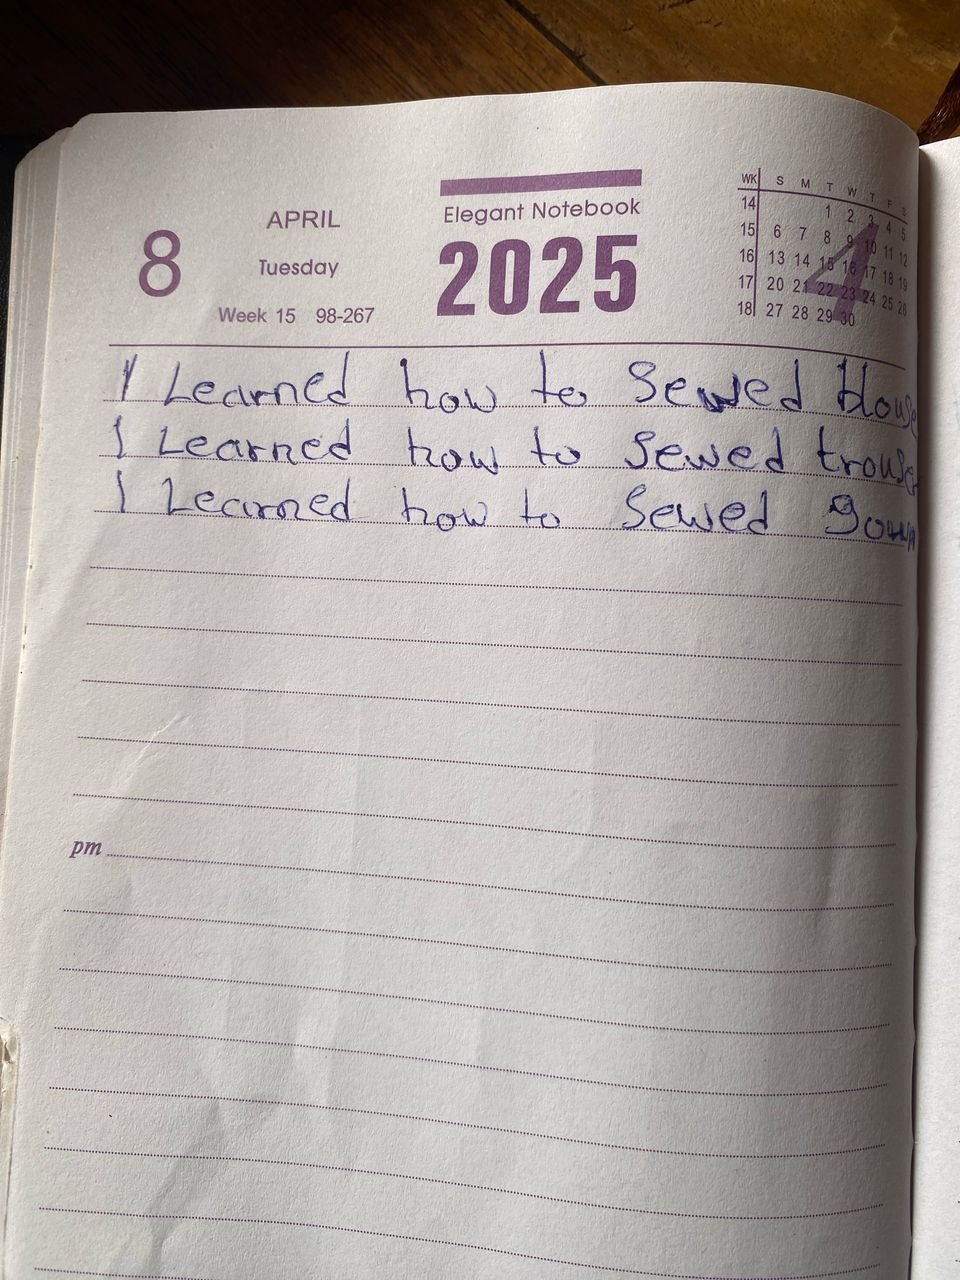 8
APRIL
Tuesday
Week 15 98-267
Elegant Notebook
2025
4
WK S M T W T F S
14 1 2 3 4 5
15 6 7 8 9 10 11 12
16 13 14 15 16 17 18 19
17 20 21 22 23 24 25 26
18 27 28 29 30
I Learned how to Sewed blouse
I Learned how to Sewed trouser
I Learned how to Sewed gown
pm